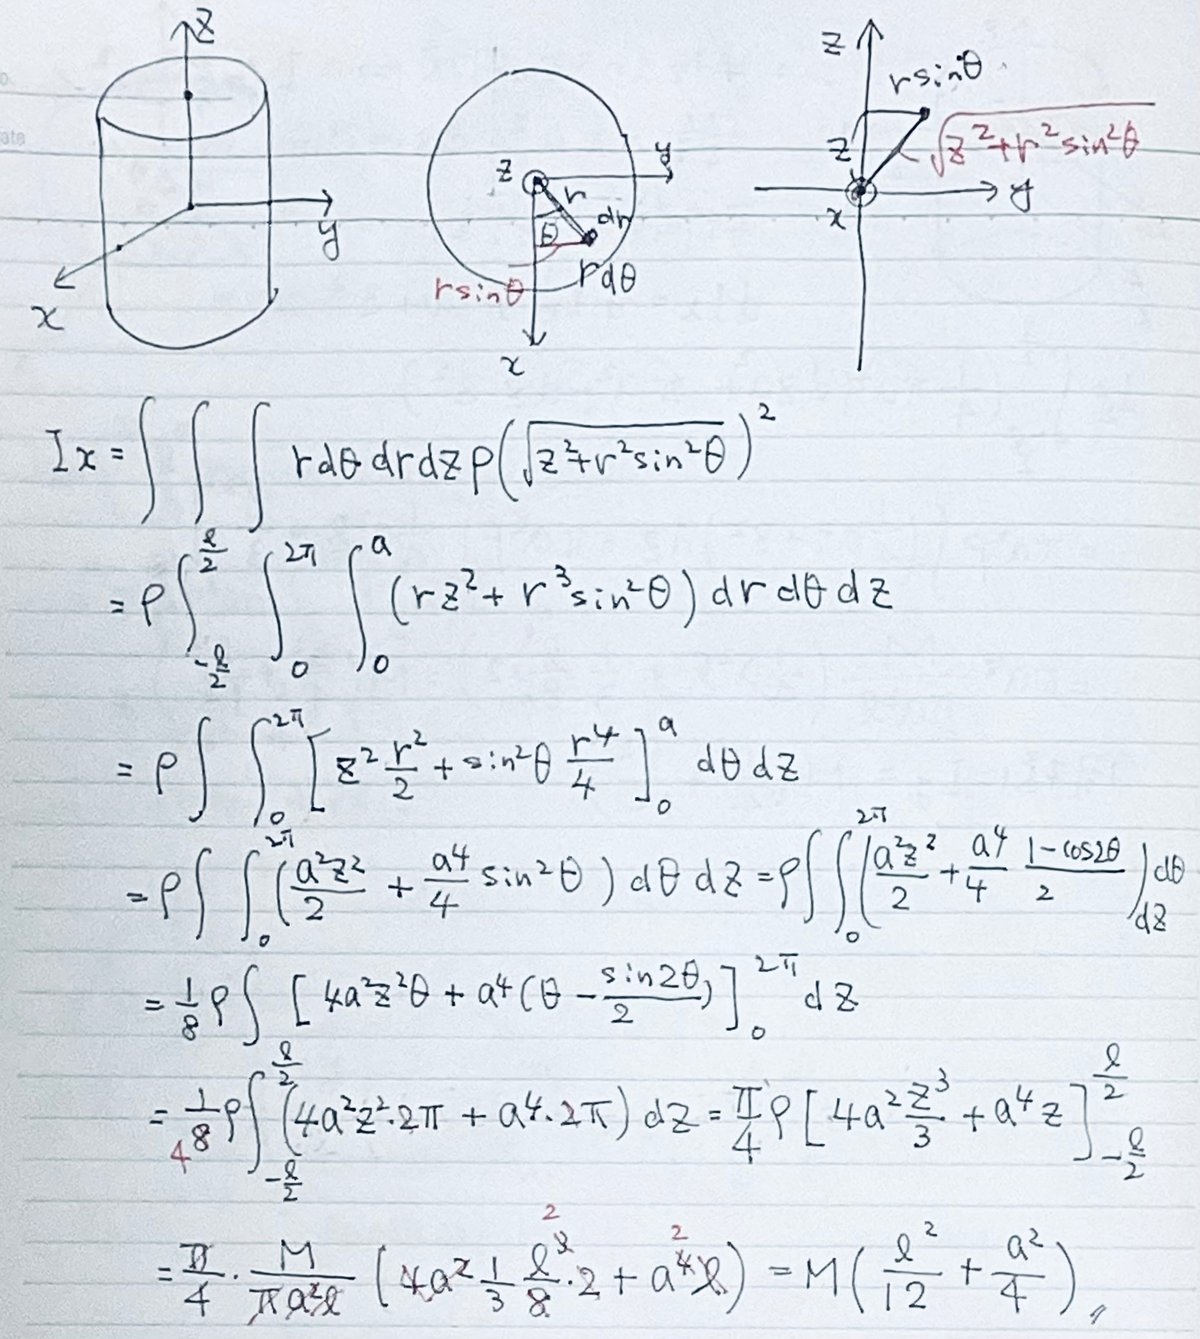 z
y
x
z y
r
dr
θ
r dθ
r sinθ
x
z
r sinθ
z
√(z²+r²sin²θ)
x y
Ix = ∫∫∫ r dθ dr dz ρ(√(z²+r²sin²θ))²
= ρ∫_{-ℓ/2}^{ℓ/2} ∫_0^{2π} ∫_0^a (rz² + r³sin²θ) dr dθ dz
= ρ∫∫_0^{2π} [z² r²/2 + sin²θ r⁴/4]_0^a dθ dz
= ρ∫∫_0^{2π} (a²z²/2 + a⁴/4 sin²θ) dθ dz = ρ∫∫_0^{2π} (a²z²/2 + a⁴/4 (1-cos2θ)/2) dθ dz
= 1/8 ρ∫ [4a²z²θ + a⁴(θ - sin2θ/2)]_0^{2π} dz
= 1/8 ρ∫_{-ℓ/2}^{ℓ/2} (4a²z²·2π + a⁴·2π) dz = π/4 ρ[4a² z³/3 + a⁴z]_{-ℓ/2}^{ℓ/2}
4
2 2
= π/4 · M/(πa²ℓ) (4a² 1/3 ℓ³/8·2 + a⁴ℓ) = M(ℓ²/12 + a²/4)〃